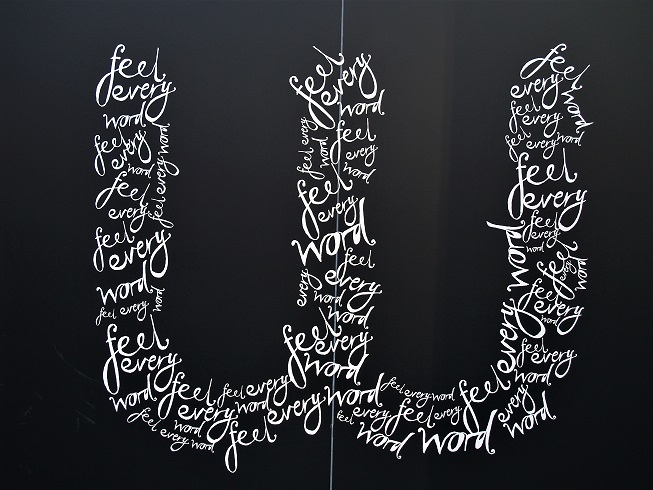 feel
every
word
feel
every
word
feel every word
feel
every
feel
every
word
feel every
word
feel
every
word
feel
every
word
feel every
word
feel
every word
feel
every
word
feel
every
word
feel every
word
feel
every
word
feel
every
word
feel
every
every
word
word
feel
every
word
feel every word
feel
every
word
feel
every
word
feel
every
word
feel
every
word
feel
every
word
feel
every
word
feel
every
word
feel
every
word
feel
every
word
feel
every
word
feel
every
word